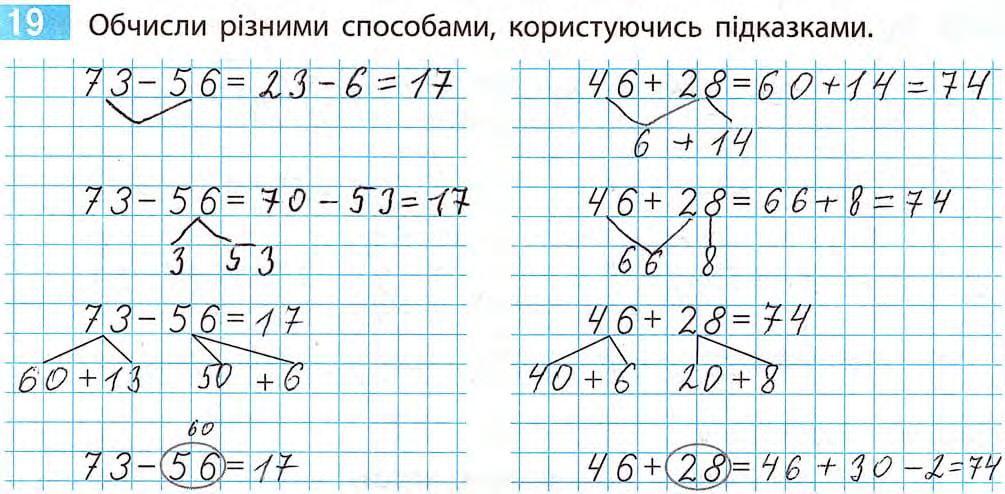 19 Обчисли різними способами, користуючись підказками.
73 - 56 = 23 - 6 = 17
73 - 56 = 70 - 53 = 17
3 53
73 - 56 = 17
60 + 13 50 + 6
60
73 - 56 = 17
46 + 28 = 60 + 14 = 74
6 + 14
46 + 28 = 66 + 8 = 74
66 8
46 + 28 = 74
40 + 6 20 + 8
46 + 28 = 46 + 30 - 2 = 74